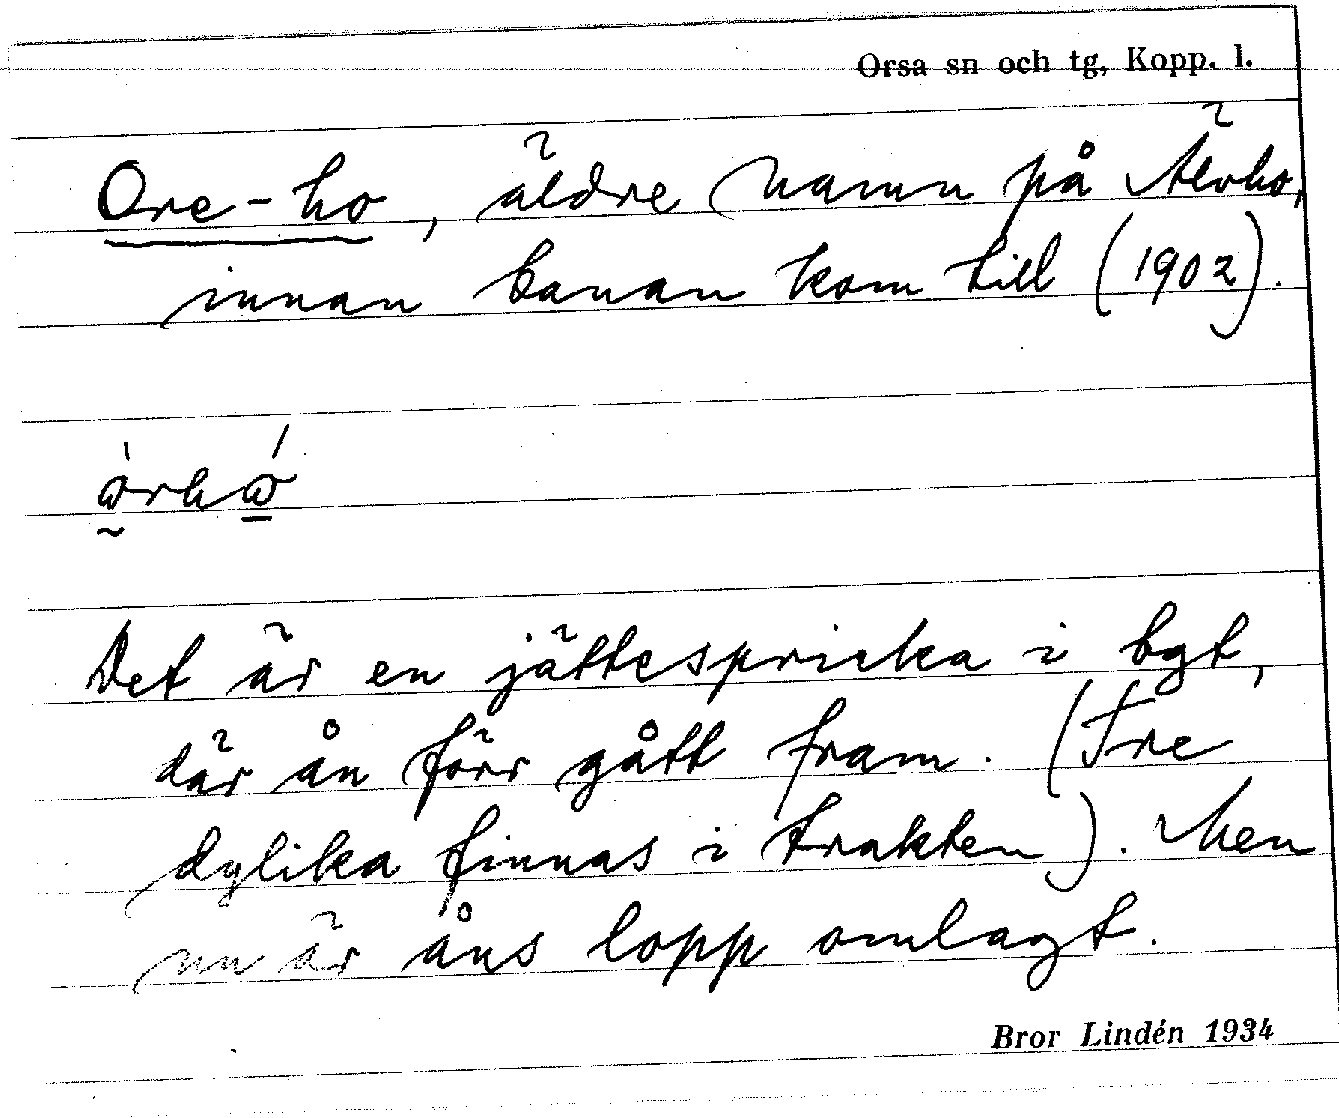 Orsa sn och tg, Kopp. l.
Ore-ho, äldre namn på Älvho,
innan banan kom till (1902).
Det är en jättespricka i bgt,
där ån förr gått fram. (Tre
dylika finnas i trakten). Men
nu är åns lopp omlagt.
Bror Lindén 1934